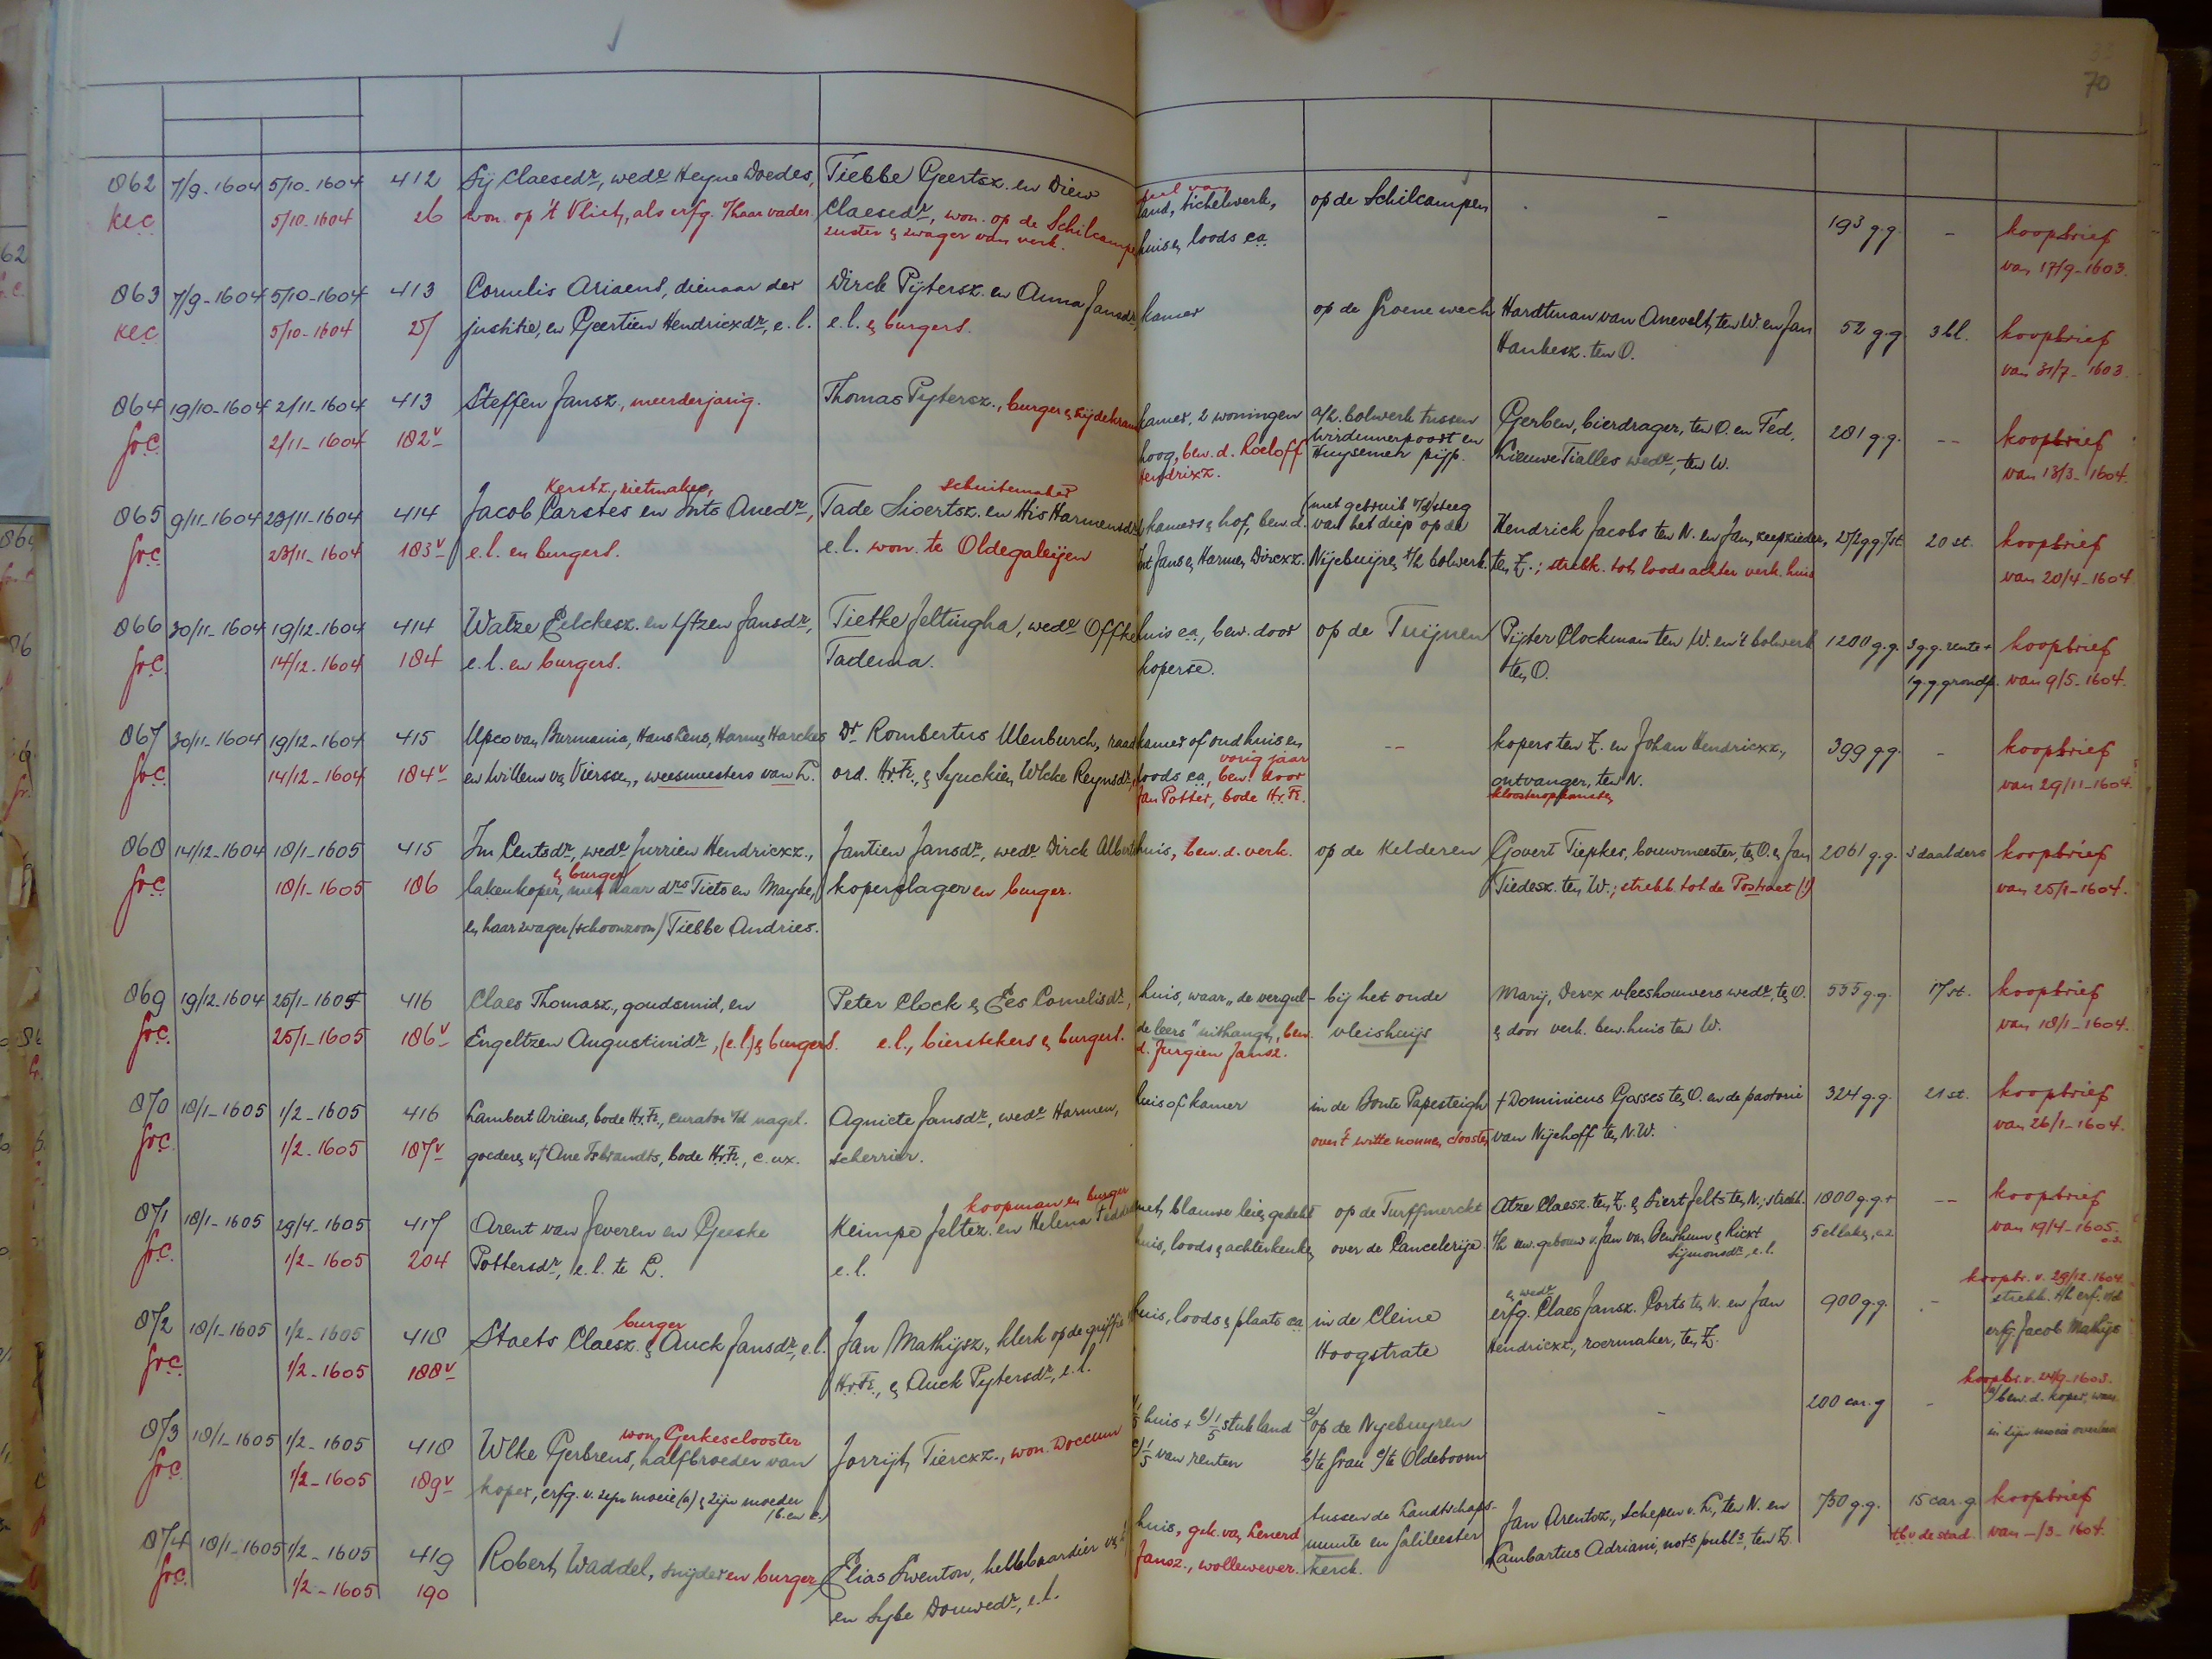 70
862 7/9-1604 5/10-1604 412 Sij Claesedr, wedr Heyne Doedes, Tiebbe Geertsz. en Diew land, tichelwerk, op de Schilcampen - 193 g.g. - koopbrief
kec 5/10-1604 26 won. op 't Vliet, als erfg. v/haar vader. Claesedr, won. op de Schilcampen huis & loods ca. van 17/9-1603.
zuster & zwager van verk.
863 7/9-1604 5/10-1604 413 Cornelis Ariaens, dienaar der Dirck Pijtersz. en Anna Jansdr, kamer op de Groene wech Hardtman van Anevelt, ten W. en Jan 52 g.g. 3 bl. koopbrief
kec 5/10-1604 27 justitie, en Geertien Hendricxdr, e.l. e.l. & burgers. Hankesz. ten O. van 31/7-1603.
864 19/10-1604 2/11-1604 413 Steffen Jansz., meerderjarig. Thomas Pytersz., burger & zijdekramer kamer, 2 woningen a/h. bolwerk tussen Gerben, bierdrager, ten O. en Fed. 281 g.g. -- koopbrief
2/11-1604 182v hoog, bew. d. Roeloff Wirdumerpoort en Lieuwe Tialles wedr, ten W. van 13/3-1604.
Hendrixz. Huysemeh pijp.
Kerstz., rietmaker, schuitemaker
865 9/11-1604 23/11-1604 414 Jacob Carstes en Ints Anedr, Tade Sioertsz. en His Harmensdr, kamers & hof, bew. d. (met gebruik v/d) steeg Hendrick Jacobs ten N. en Jan, zeepzieder, 272 gg 7 st. 20 st. koopbrief
23/11-1604 183v e.l. en burgers. e.l. won. te Oldegaleijen Int Jans & Harmen Dircxz. van het diep op de Nijebuijren t/h bolwerk. ten Z.; strekk. tot loods achter verk. huis van 20/4-1604.
866 30/11-1604 19/12-1604 414 Watze Eelckesz. en Ytzen Jansdr, Tietke Jeltingha, wedr Offke huis ca., bew. door op de Tuijnen Pijter Clockman ten W. en 't bolwerk 1200 g.g. 3 g.g. rente + koopbrief
14/12-1604 184 e.l. en burgers. Tadema. koperse. ten O. 1 g.g. grondp. van 9/5-1604.
867 30/11-1604 19/12-1604 415 Upco van Burmania, Hans Lens, Harmen Harckes Dr Rombertus Ulenburch, raad kamer of oud huis en -- kopers ten Z. en Johan Hendricxz., 399 g.g. - koopbrief
14/12-1604 184v en Willem van Vierssen, weesmeesters van L. ord. H.v.Fr., & Synckien Wlcke Reynsdr, loods ca., bew. vorig jaar door ontvanger, ten N. van 29/11-1604.
Jan Potter, bode H.v.Fr. kloosteropkomsten
868 14/12-1604 18/1-1605 415 Im Centsdr, wedr Jurrien Hendricxz., Jantien Jansdr, wedr Dirck Alberts huis, bew. d. verk. op de Kelderen Govert Tiepkes, bouwmeester, ten O. & Jan 2061 g.g. 3 daalders koopbrief
18/1-1605 186 lakenkoper & burger, met haar drs Tiets en Mayke, koperslager en burger. Tiedesz. ten W.; strekk. tot de Postraet (!) van 25/1-1604.
en haar zwager (schoonzoon) Tiebbe Andries.
869 19/12-1604 25/1-1605 416 Claes Thomasz., goudsmid, en Peter Clock & Ees Cornelisdr, huis, waar "de vergul- bij het oude Marij, Dercx vleeshouwers wedr, ten O. 535 g.g. 17 st. koopbrief
25/1-1605 186v Engeltzen Augustinidr, (e.l.) & burgers. e.l., bierstekers & burgers. de leers" uithangt, bew. vleishuijs & door verk. bew. huis ten W. van 18/1-1604.
d. Jurgien Jansz.
870 18/1-1605 1/2-1605 416 Lambert Ariens, bode H.v.Fr., curator v/d nagel. Agniete Jansdr, wedr Harmen, huis of kamer in de Bonte Papesteigh † Dominicus Gosses ten O. en de pastorie 324 g.g. 21 st. koopbrief
1/2-1605 187v goederen v. † Ane Isbrandts, bode H.v.Fr., c. ux. scherrier. over 't witte nonnen clooster van Nijehoff ten N.W. van 26/1-1604.
koopman en burger
871 18/1-1605 29/4-1605 417 Arent van Jeveren en Geeske Keimpe Jeltez. en Helena met blauwe leien gedekt op de Turffmerckt Atze Claesz. ten Z. & Siert Jelts ten N.; strekk. 1800 g.g. + -- koopbrief
1/2-1605 204 Pottersdr, e.l. te L. e.l. huis, loods & achterkeuken over de Cancelerije. t/h nw. gebouw v. Jan van Benthum & Rickt 5 el laken, van 19/4-1605.
Sijmonsdr, e.l.
872 18/1-1605 1/2-1605 418 Staets Claesz. burger & Auck Jansdr, e.l. Jan Mathijsz., klerk op de griffie huis, loods & plaats ca in de Cleine erfg. & wedr Claes Jansz. Corts ten N. en Jan 900 g.g. - koopbr. v. 29/12-1604.
1/2-1605 188v H.v.Fr., & Auck Pytersdr, e.l. Hoogstrate Hendricxz., roermaker, ten Z. strekk. t/h erf. v/d
erfg. Jacob Mathijs
873 18/1-1605 1/2-1605 418 Wlke Gerbrens, won. Gerkesclooster halfbroeder van Jorrijt Tiercxz., won. Doccum 1/5 huis + b) 1/5 stuk land a) op de Nijebuijren - 200 car. g - koopbr. v. 24/9-1603.
1/2-1605 189v koper, erfg. v. zijn moeie (a) & zijn moeder c) 1/5 van renten b) te Grau c) te Oldeboorn a) bew. d. koper, waar
(b. en c.) in zijn moeie overleden
874 18/1-1605 1/2-1605 419 Robert Waddel, snijder en burger Elias Swenton, hellebaardier huis, gek. van Lenerd tussen de Landtschaps- Jan Arentsz., schepen v. L., ten N. en 750 g.g. 15 car. g. koopbrief
1/2-1605 190 en Sybe Douwedr, e.l. Jansz., wollewever. munte en Galileester Lambartus Adriani, nots publs, ten Z. tbv de stad van -/3-1604.
kerck.